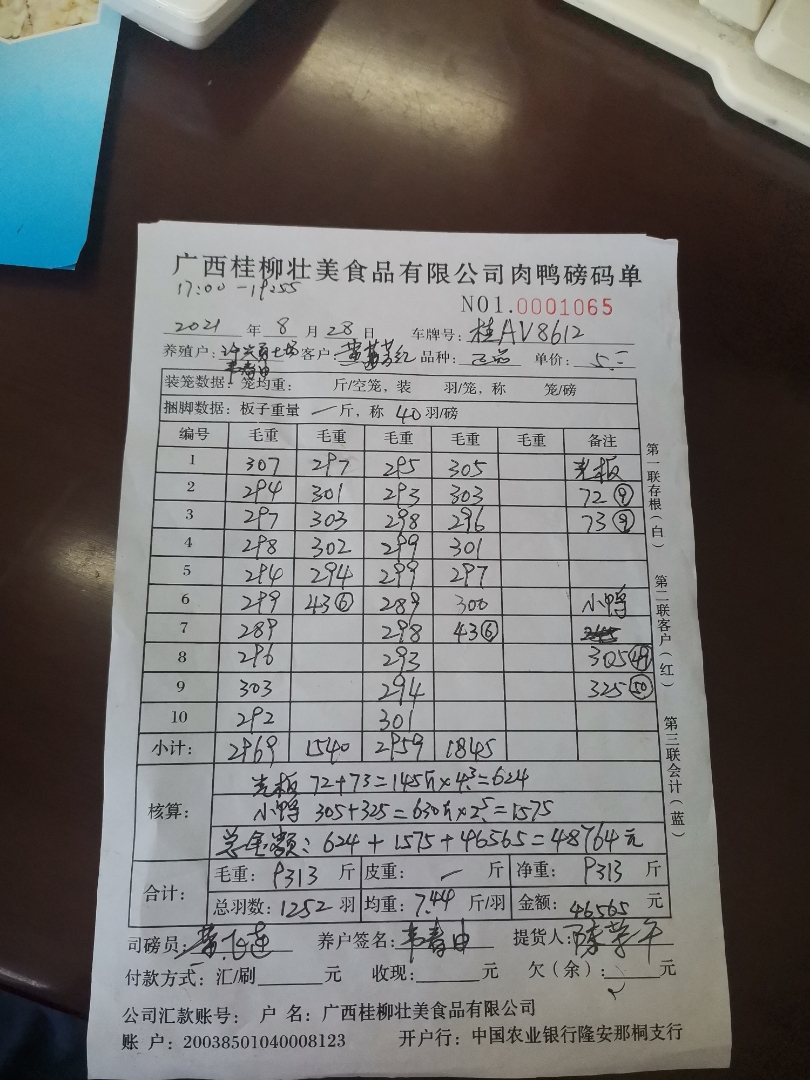 广西桂柳壮美食品有限公司肉鸭磅码单
17:00-19:55
NO1.0001065
2021 年 8 月 28 日 车牌号: 桂AV8612
养殖户: 客户: 品种: 单价: 5.三
韦春由
装笼数据: 笼均重: 斤/空笼, 装 羽/笼, 称 笼/磅
捆脚数据: 板子重量 一 斤, 称 40 羽/磅
编号 毛重 毛重 毛重 毛重 毛重 备注
1 307 297 295 305 光板
2 294 301 293 303 72⑨
3 297 303 298 296 73⑨
4 298 302 299 301
5 294 294 299 297
6 299 43⑥ 289 300 小鸭
7 289 298 43⑥
8 296 293 305㊾
9 303 294 325㊿
10 292 301
小计: 2969 1540 2959 1845
核算: 光板 72+73=145斤×4.3=624
小鸭 305+325=630斤×2.5=1575
总金额: 624+1575+46565=48764元
合计: 毛重: 9313 斤 皮重: 一 斤 净重: 9313 斤
总羽数: 1252 羽 均重: 7.44 斤/羽 金额: 46565 元
司磅员: 养户签名: 韦春由 提货人:
付款方式: 汇/刷 元 收现: 元 欠(余): 元
公司汇款账号: 户 名: 广西桂柳壮美食品有限公司
账 户: 20038501040008123 开户行: 中国农业银行隆安那桐支行
第一联存根(白)
第二联客户(红)
第三联会计(蓝)